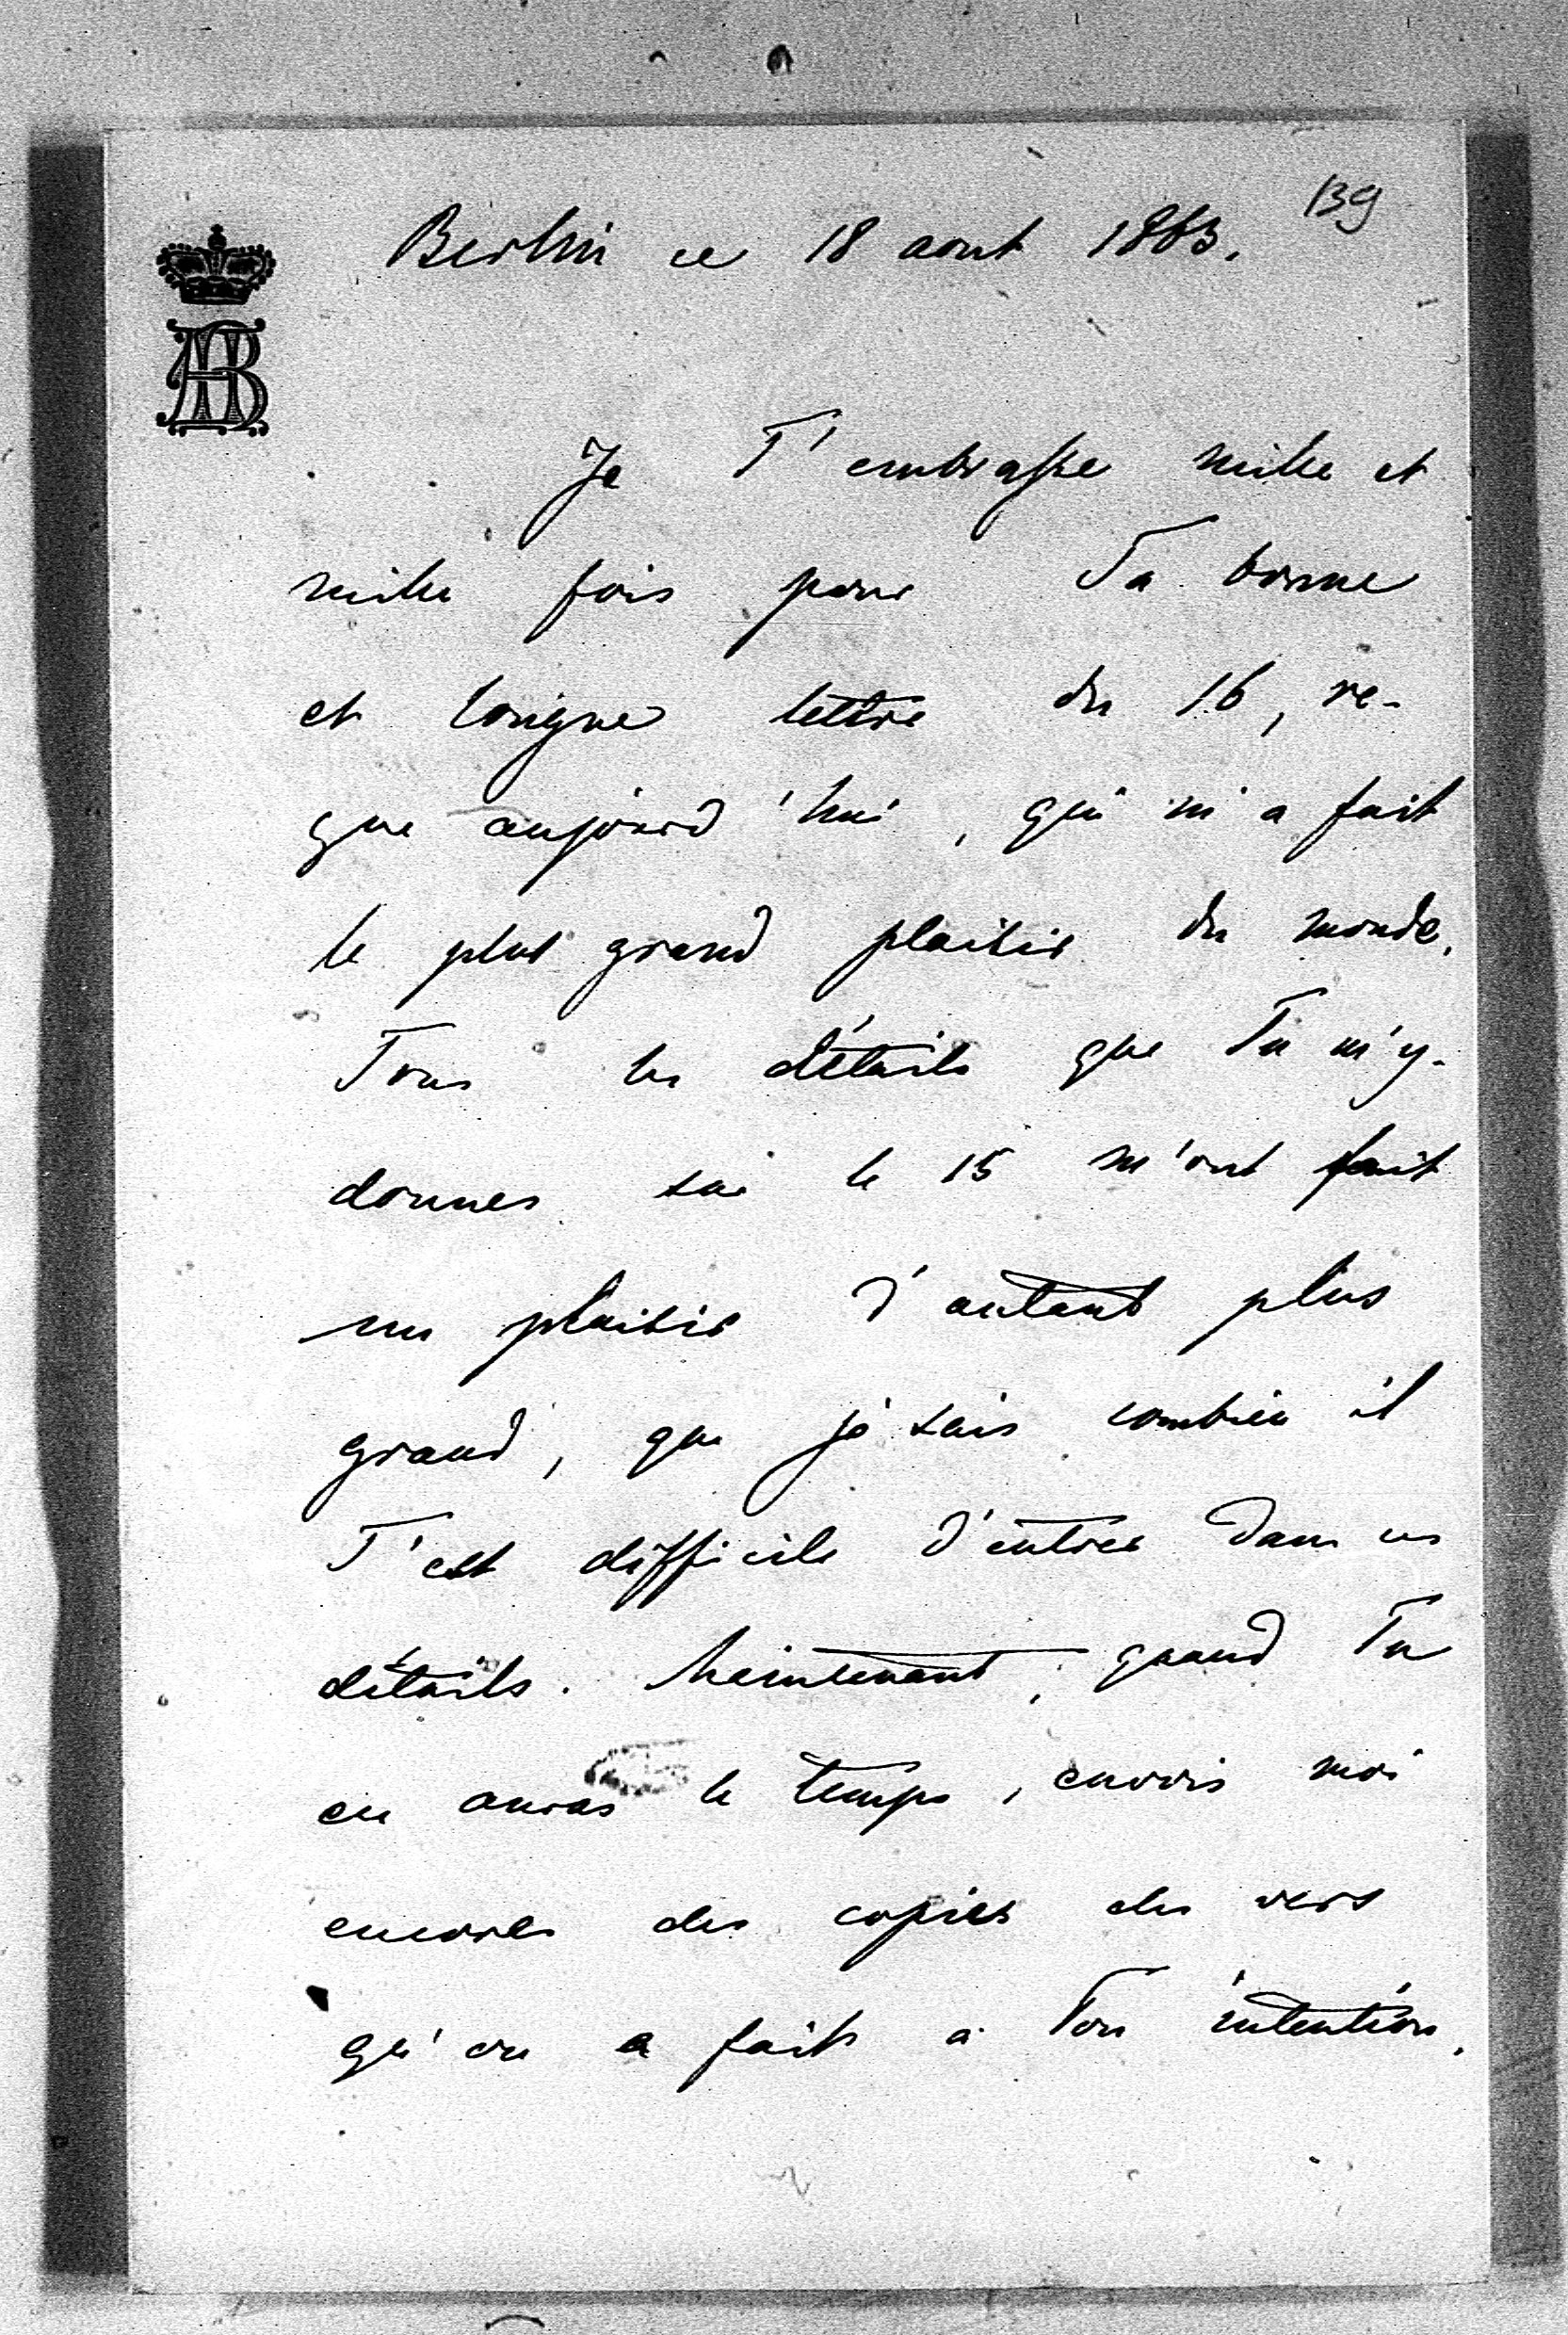 139
Berlin ce 18 aout 1863.
AB
Je T'embrasse mille et
mille fois pour Ta bonne
et longue lettre du 16, re-
çue aujourd'hui, qui m'a fait
le plus grand plaisir du monde.
Tous les détails que Tu m'y
donnes sur le 15 m'ont fait
un plaisir d'autant plus
grand, que je sais combien il
T'est difficile d'entrer dans ces
détails. Maintenant, quand Tu
en auras le temps, envois moi
encore des copies des vers
qu'on a faits a Ton intention.